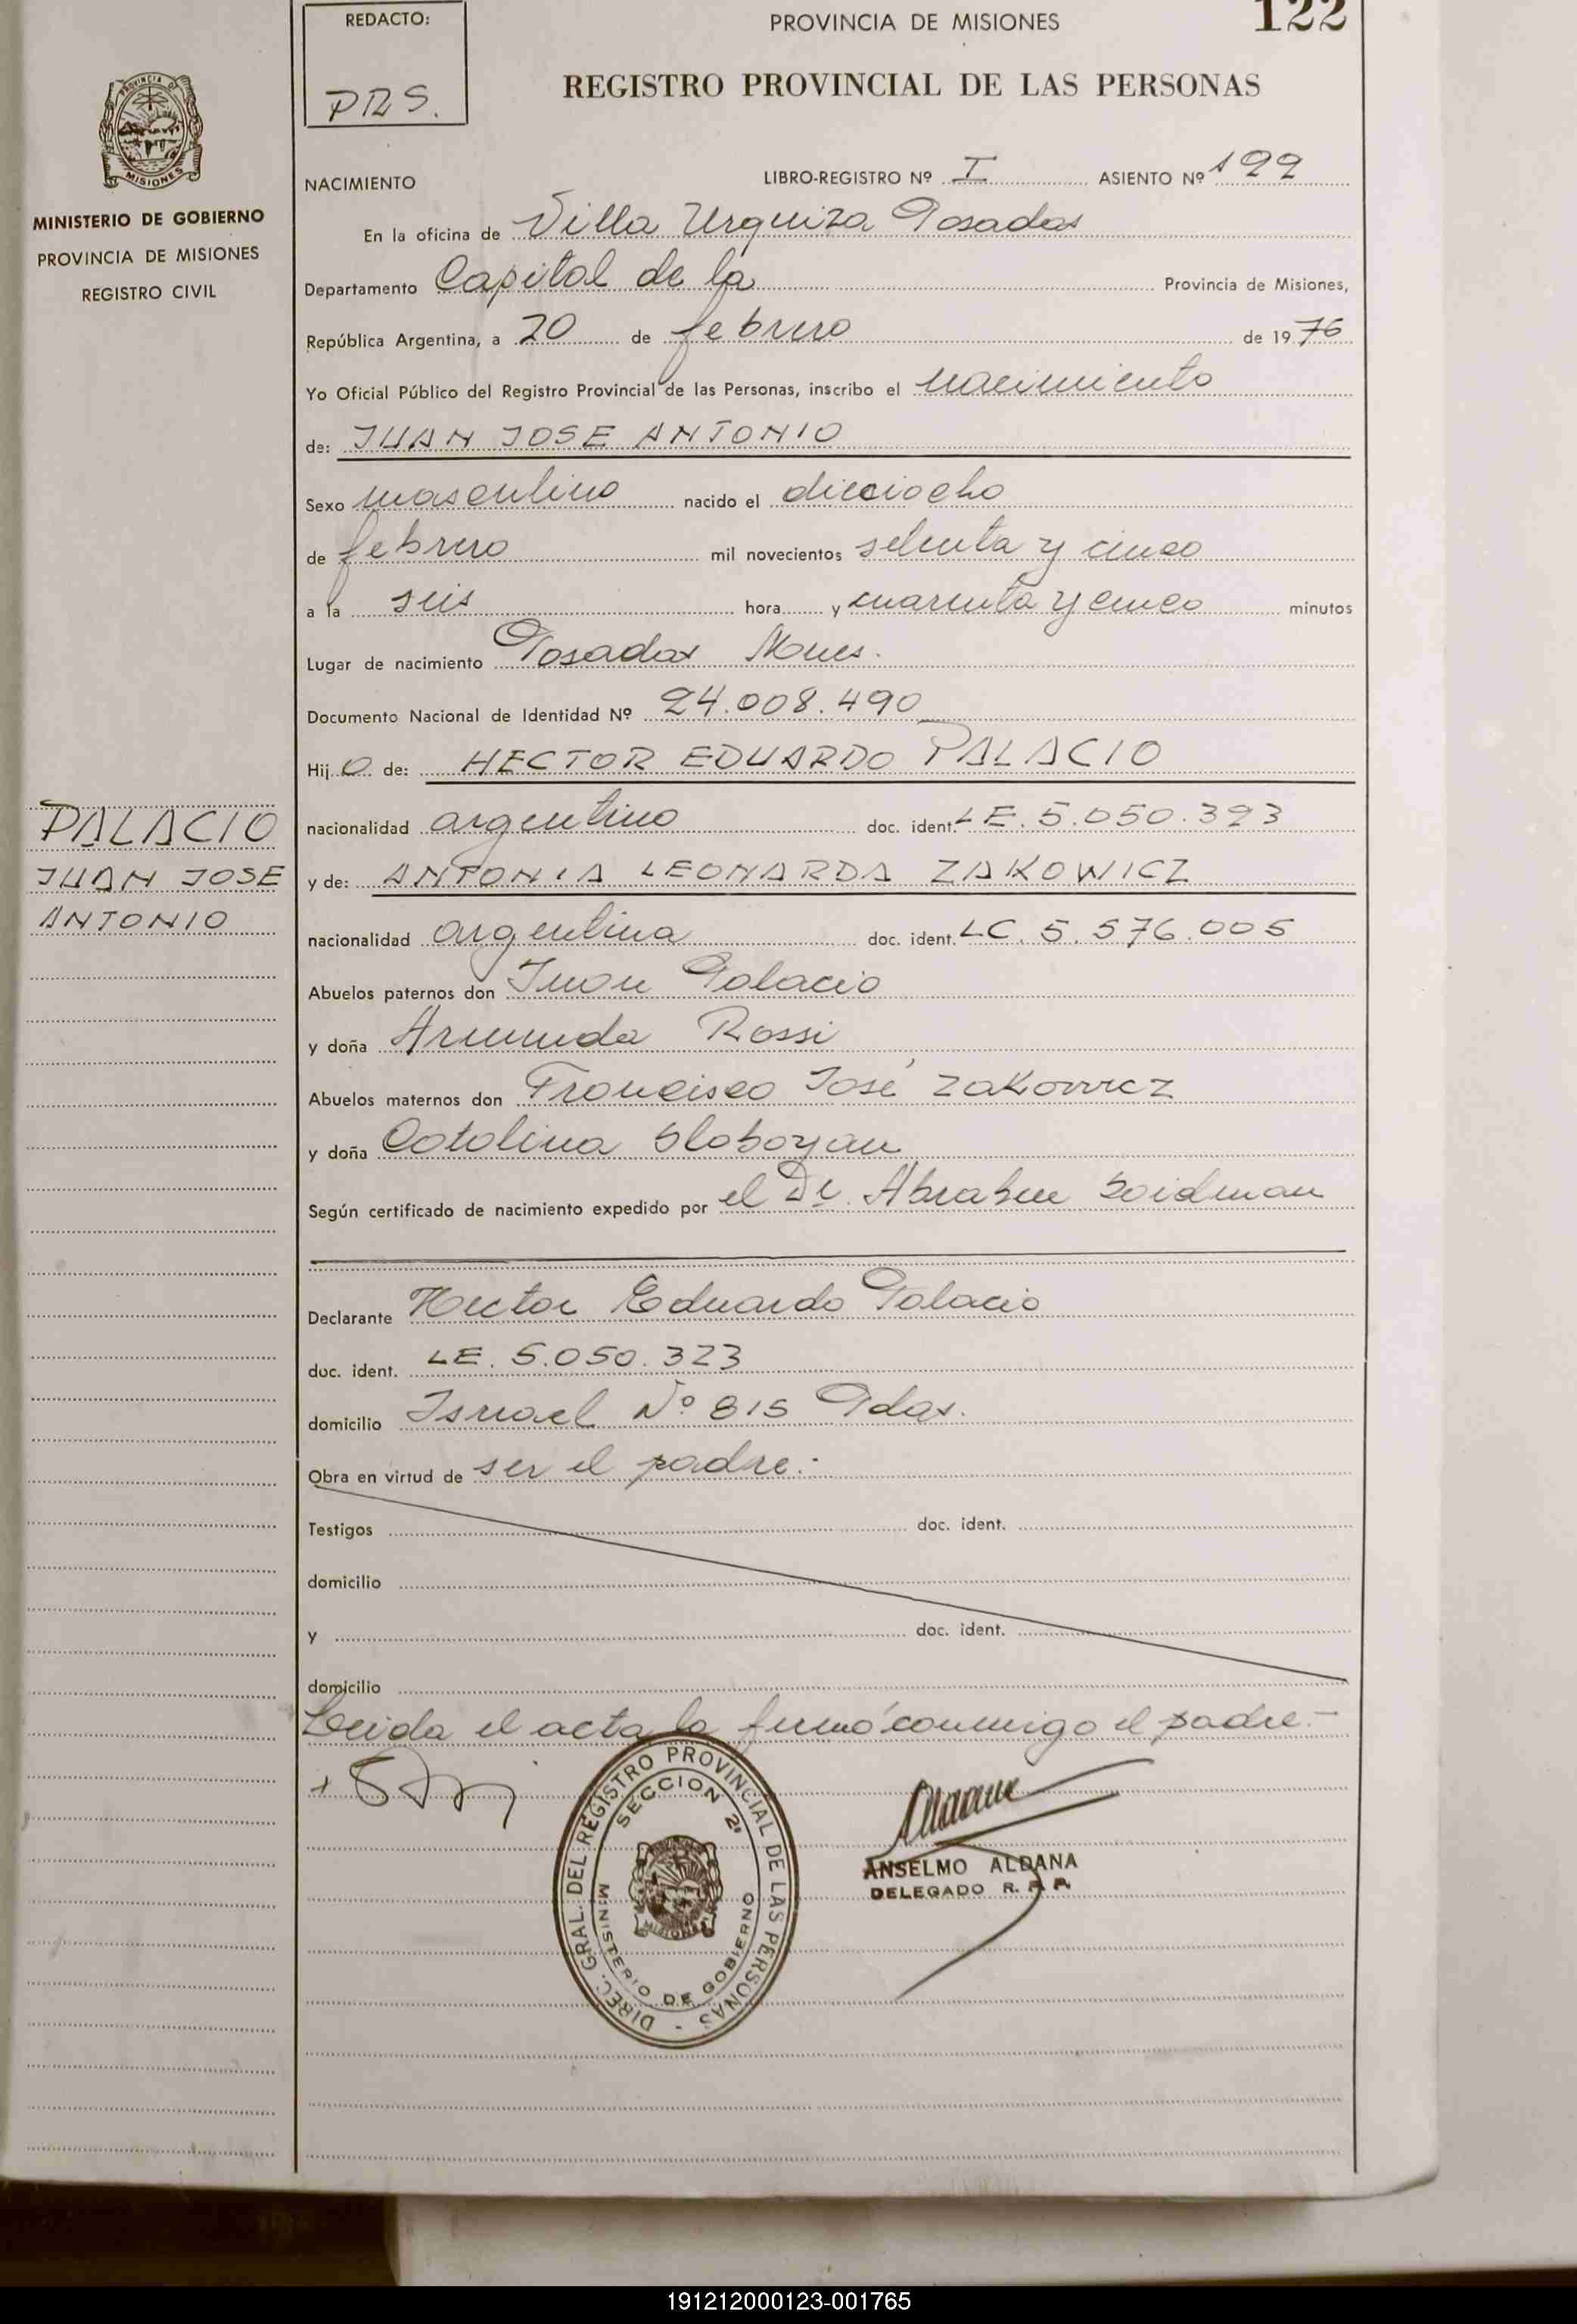 REDACTO:
PRS.
PROVINCIA DE MISIONES
122
REGISTRO PROVINCIAL DE LAS PERSONAS
PROVINCIA DE
MISIONES
MINISTERIO DE GOBIERNO
PROVINCIA DE MISIONES
REGISTRO CIVIL
NACIMIENTO LIBRO-REGISTRO Nº I ASIENTO Nº 199
En la oficina de Villa Urquiza Posadas
Departamento Capital de la Provincia de Misiones,
República Argentina, a 20 de febrero de 1976
Yo Oficial Público del Registro Provincial de las Personas, inscribo el nacimiento
de: JUAN JOSE ANTONIO
Sexo masculino nacido el dieciocho
de febrero mil novecientos setenta y cinco
a la seis hora y cuarenta y cinco minutos
Lugar de nacimiento Posadas Mnes.
Documento Nacional de Identidad Nº 24.008.490
Hijo de: HECTOR EDUARDO PALACIO
PALACIO
JUAN JOSE
ANTONIO
nacionalidad argentino doc. ident. LE. 5.050.323
y de: ANTONIA LEONARDA ZAKOWICZ
nacionalidad argentina doc. ident. LC. 5.576.005
Abuelos paternos don Juan Palacio
y doña Armunda Rossi
Abuelos maternos don Francisco José Zakowicz
y doña Catalina Sloboyan
Según certificado de nacimiento expedido por el Dr. Abraham Soidman
Declarante Hector Eduardo Palacio
doc. ident. LE. 5.050.323
domicilio Israel Nº 815 Pdas.
Obra en virtud de ser el padre.-
Testigos doc. ident.
domicilio
y doc. ident.
domicilio
Leida el acta la firmó conmigo el padre.-
DIREC. GRAL. DEL REGISTRO PROVINCIAL DE LAS PERSONAS -
SECCION 2ª
MINISTERIO DE GOBIERNO
MISIONES
ANSELMO ALDANA
DELEGADO R. P. P.
191212000123-001765